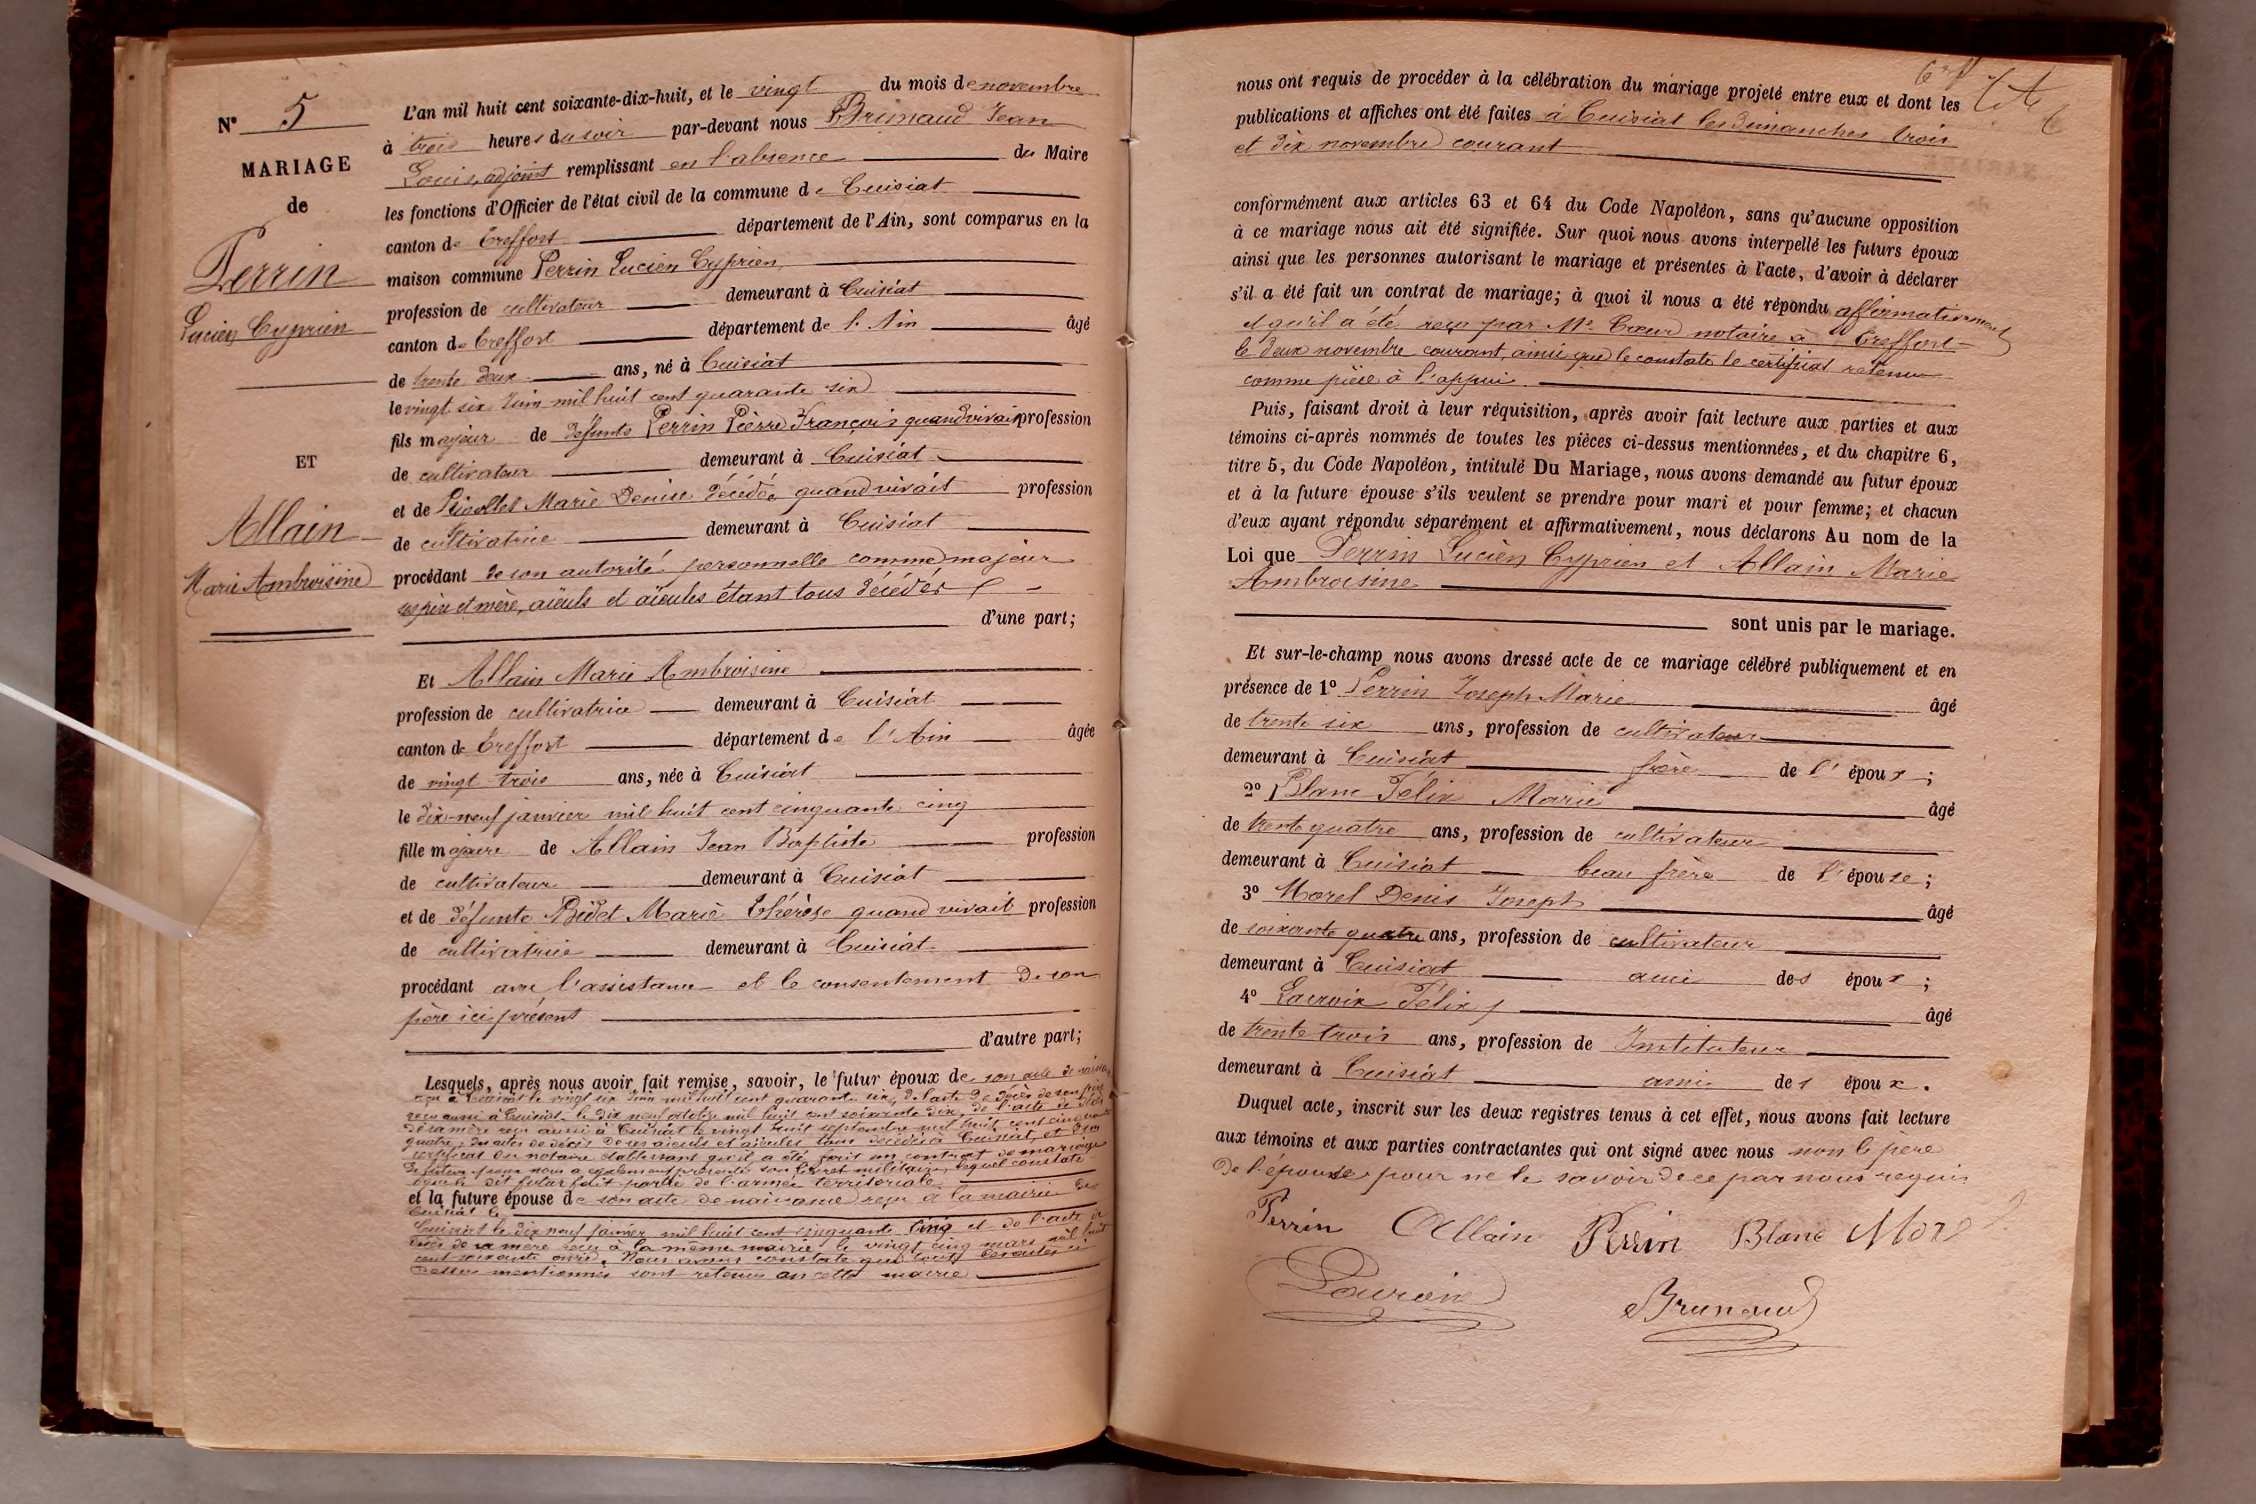 N° 5
MARIAGE
de
Perrin
Lucien Cyprien
ET
Allain
Marie Ambroisine
L'an mil huit cent soixante-dix-huit, et le vingt du mois de novembre
à trois heures du soir par-devant nous Brunaud Jean
Louis, adjoint remplissant en l'absence du Maire
les fonctions d'Officier de l'état civil de la commune de Cuisiat
canton de Treffort département de l'Ain, sont comparus en la
maison commune Perrin Lucien Cyprien
profession de cultivateur demeurant à Cuisiat
canton de Treffort département de l'Ain âgé
de trente deux ans, né à Cuisiat
le vingt six Juin mil huit cent quarante six
fils majeur de défunts Perrin Pierre François quand vivait profession
de cultivateur demeurant à Cuisiat
et de Marie Denise décédée quand vivait profession
de cultivatrice demeurant à Cuisiat
procédant de son autorité personnelle comme majeur
ses père et mère, aïeuls et aïeules étant tous décédés
d'une part;
Et Allain Marie Ambroisine
profession de cultivatrice demeurant à Cuisiat
canton de Treffort département de l'Ain âgée
de vingt trois ans, née à Cuisiat
le dix-neuf janvier mil huit cent cinquante cinq
fille majeure de Allain Jean Baptiste profession
de cultivateur demeurant à Cuisiat
et de défunte Bidet Marie Thérèse quand vivait profession
de cultivatrice demeurant à Cuisiat
procédant avec l'assistance et le consentement de son
père ici présent
d'autre part;
Lesquels, après nous avoir fait remise, savoir, le futur époux de son acte de naissance
reçu à Cuisiat le vingt six Juin mil huit cent quarante six, de l'acte de décès de son père
reçu aussi à Cuisiat, le dix neuf octobre mil huit cent soixante dix, de l'acte de décès
de sa mère reçu aussi à Cuisiat le vingt huit septembre mil huit cent cinquante
quatre, des actes de décès de ses aïeuls et aïeules tous décédés à Cuisiat, et d'un
certificat du notaire établissant qu'il a été fait un contrat de mariage
le futur époux nous a également présenté son livret militaire, lequel constate
que le dit futur fait partie de l'armée territoriale
et la future épouse de son acte de naissance reçu à la mairie de
Cuisiat le
Cuisiat le dix neuf janvier mil huit cent cinquante cinq et de l'acte de
décès de sa mère reçu à la même mairie le vingt cinq mars mil huit
cent soixante onze. Nous avons constaté que tous
dessus mentionnés sont retenus en cette mairie
nous ont requis de procéder à la célébration du mariage projeté entre eux et dont les
publications et affiches ont été faites à Cuisiat les dimanches trois
et dix novembre courant
conformément aux articles 63 et 64 du Code Napoléon, sans qu'aucune opposition
à ce mariage nous ait été signifiée. Sur quoi nous avons interpellé les futurs époux
ainsi que les personnes autorisant le mariage et présentes à l'acte, d'avoir à déclarer
s'il a été fait un contrat de mariage; à quoi il nous a été répondu affirmativement
et qu'il a été reçu par Me Cœur notaire à Treffort
le deux novembre courant, ainsi que le constate le certificat retenu
comme pièce à l'appui
Puis, faisant droit à leur réquisition, après avoir fait lecture aux parties et aux
témoins ci-après nommés de toutes les pièces ci-dessus mentionnées, et du chapitre 6,
titre 5, du Code Napoléon, intitulé Du Mariage, nous avons demandé au futur époux
et à la future épouse s'ils veulent se prendre pour mari et pour femme; et chacun
d'eux ayant répondu séparément et affirmativement, nous déclarons Au nom de la
Loi que Perrin Lucien Cyprien et Allain Marie
Ambroisine
sont unis par le mariage.
Et sur-le-champ nous avons dressé acte de ce mariage célébré publiquement et en
présence de 1° Perrin Joseph Marie âgé
de trente six ans, profession de cultivateur
demeurant à Cuisiat frère de l'époux;
2° Blanc Félix Marie âgé
de trente quatre ans, profession de cultivateur
demeurant à Cuisiat beau frère de l'épouse;
3° Morel Denis Joseph âgé
de soixante quatre ans, profession de cultivateur
demeurant à Cuisiat ami des époux;
4° Lacroix Félix âgé
de trente trois ans, profession de Instituteur
demeurant à Cuisiat ami des époux.
Duquel acte, inscrit sur les deux registres tenus à cet effet, nous avons fait lecture
aux témoins et aux parties contractantes qui ont signé avec nous non le père
de l'épouse pour ne le savoir de ce par nous requis
Perrin Allain Perrin Blanc Morel
Brunaud